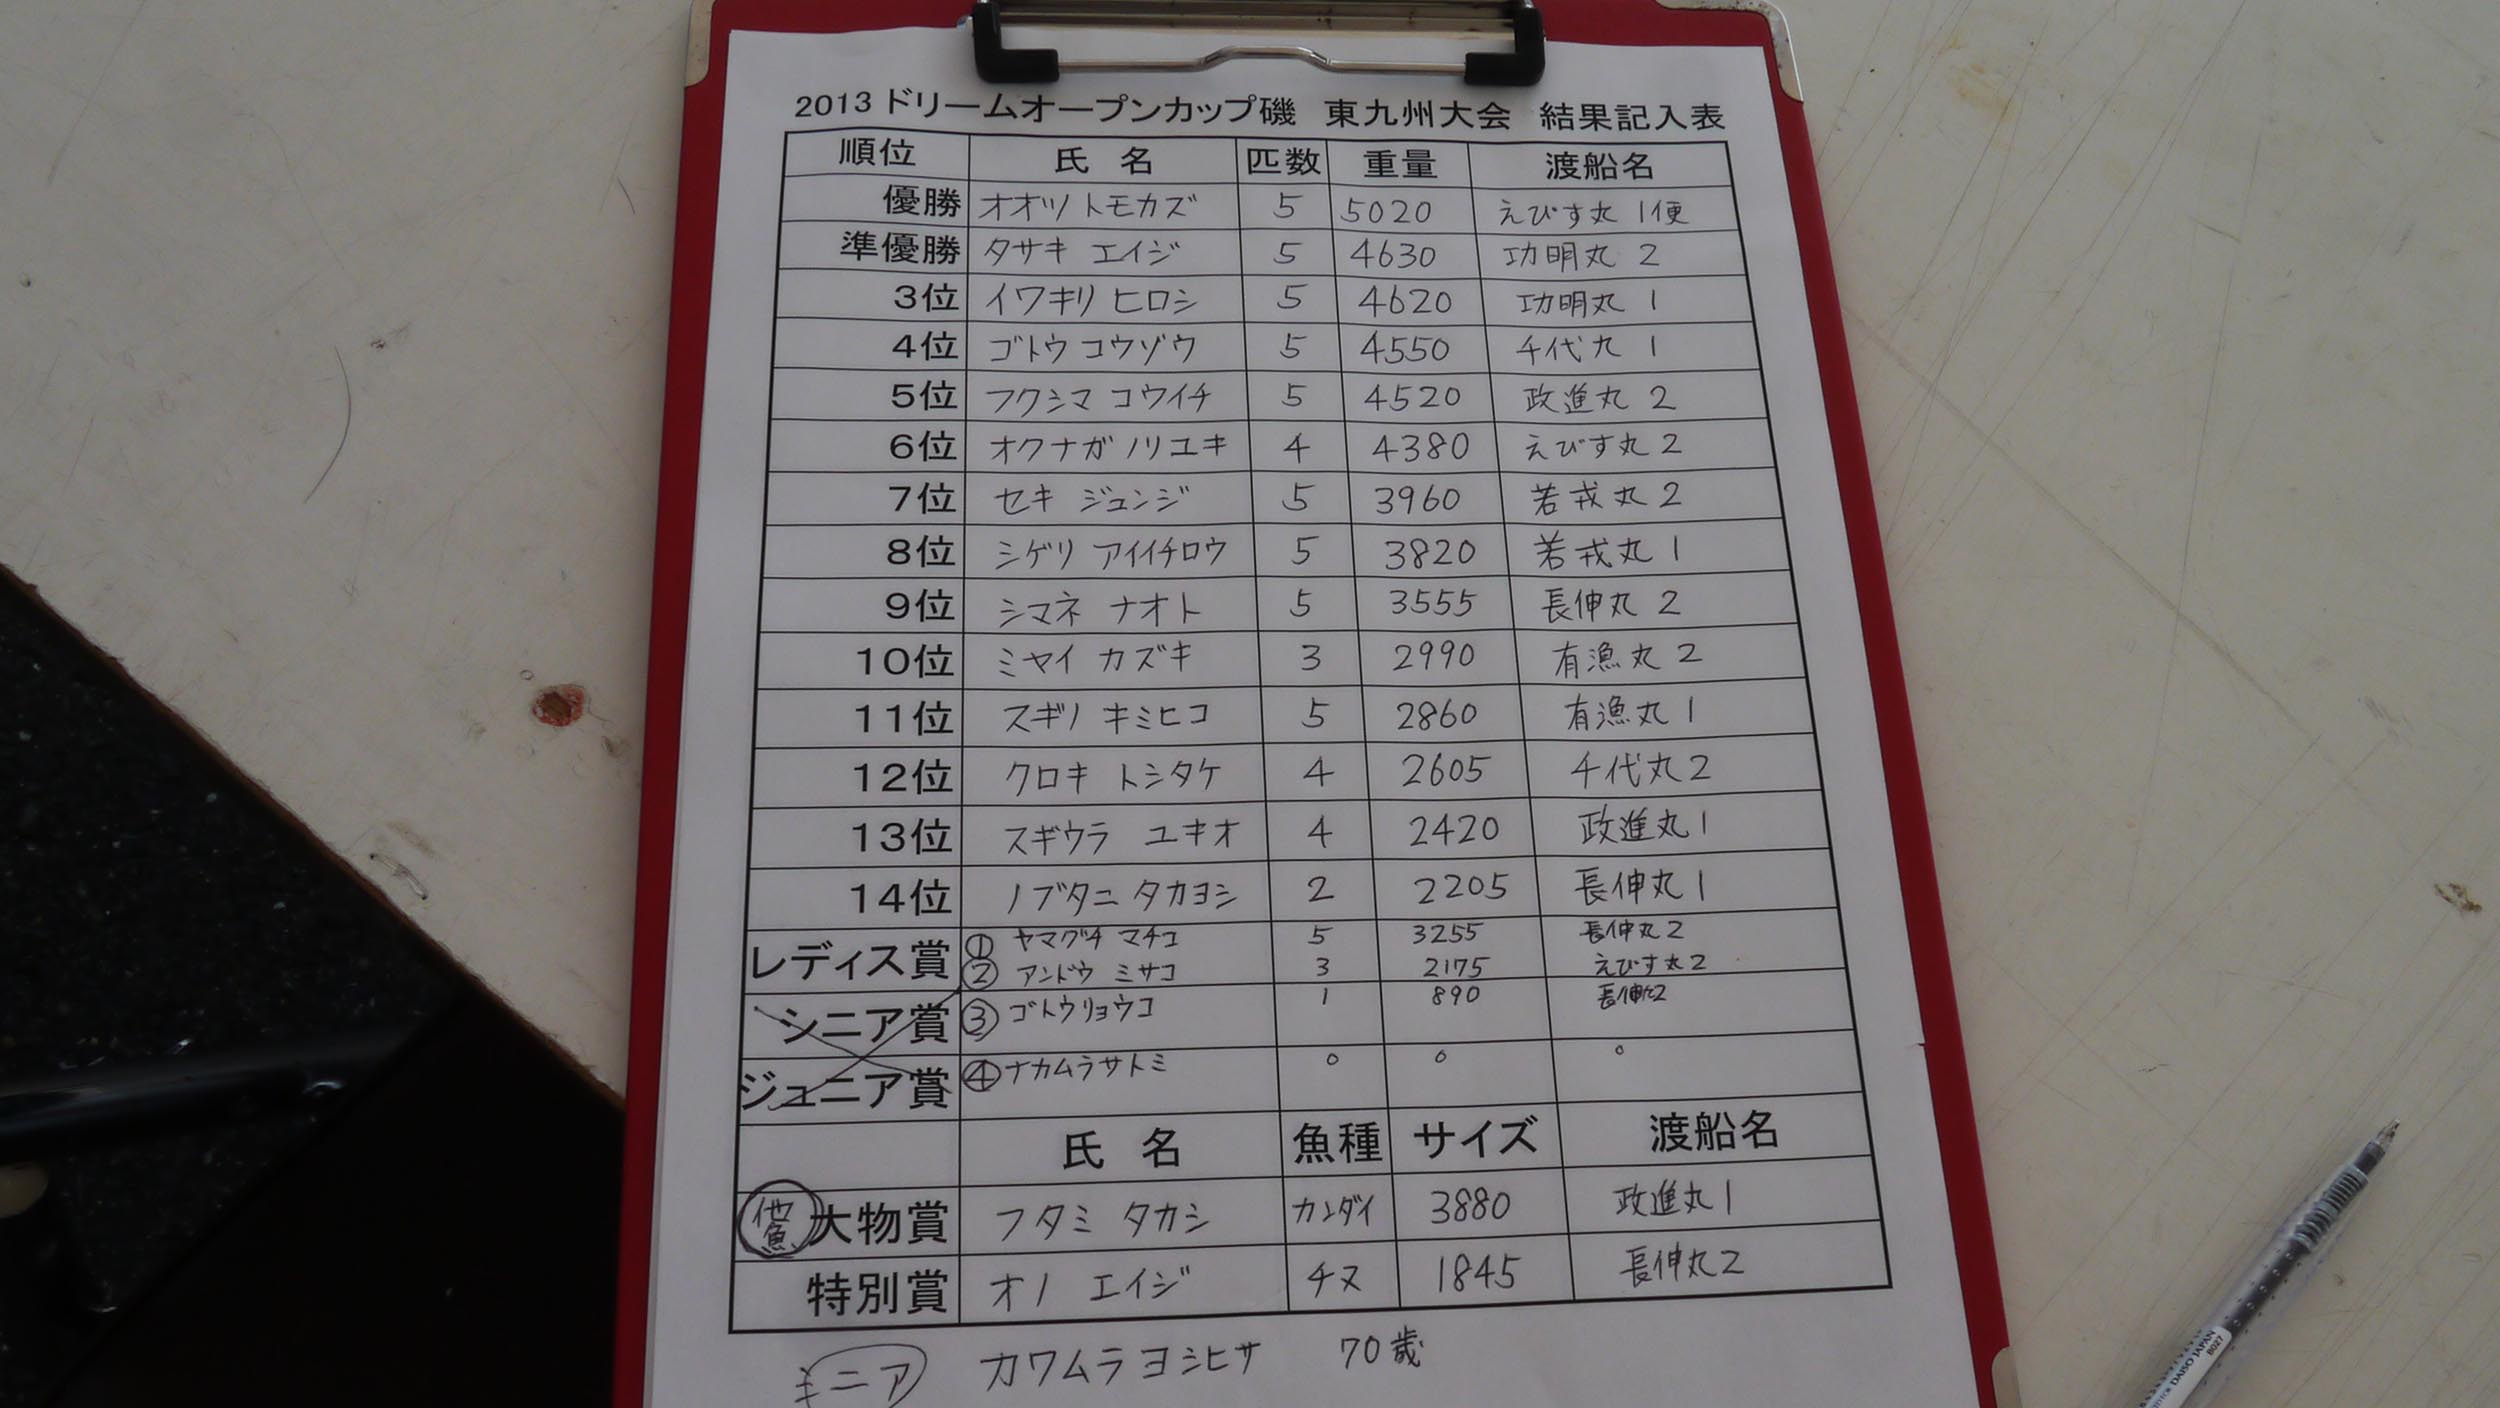 2013 ドリームオープンカップ磯 東九州大会 結果記入表
順位 氏名 匹数 重量 渡船名
優勝 オオツ トモカズ 5 5020 えびす丸 1便
準優勝 タサキ エイジ 5 4630 功明丸 2
3位 イワキリ ヒロシ 5 4620 功明丸 1
4位 ゴトウ コウゾウ 5 4550 千代丸 1
5位 フクシマ コウイチ 5 4520 政進丸 2
6位 オクナガ ノリユキ 4 4380 えびす丸 2
7位 セキ ジュンジ 5 3960 若戎丸 2
8位 シゲリ アイイチロウ 5 3820 若戎丸 1
9位 シマネ ナオト 5 3555 長伸丸 2
10位 ミヤイ カズキ 3 2990 有漁丸 2
11位 スギノ キミヒコ 5 2860 有漁丸 1
12位 クロキ トシタケ 4 2605 千代丸 2
13位 スギウラ ユキオ 4 2420 政進丸 1
14位 ノブタニ タカヨシ 2 2205 長伸丸 1
レディス賞 ① ヤマグチ マチコ 5 3255 長伸丸 2
② アンドウ ミサコ 3 2175 えびす丸 2
シニア賞 ③ ゴトウリョウコ 1 890 長伸丸2
ジュニア賞 ④ ナカムラサトミ 0 0 0
氏名 魚種 サイズ 渡船名
他魚 大物賞 フタミ タカシ カンダイ 3880 政進丸 1
特別賞 オノ エイジ チヌ 1845 長伸丸 2
ニア カワムラ ヨシヒサ 70歳
DAISO JAPAN
B027